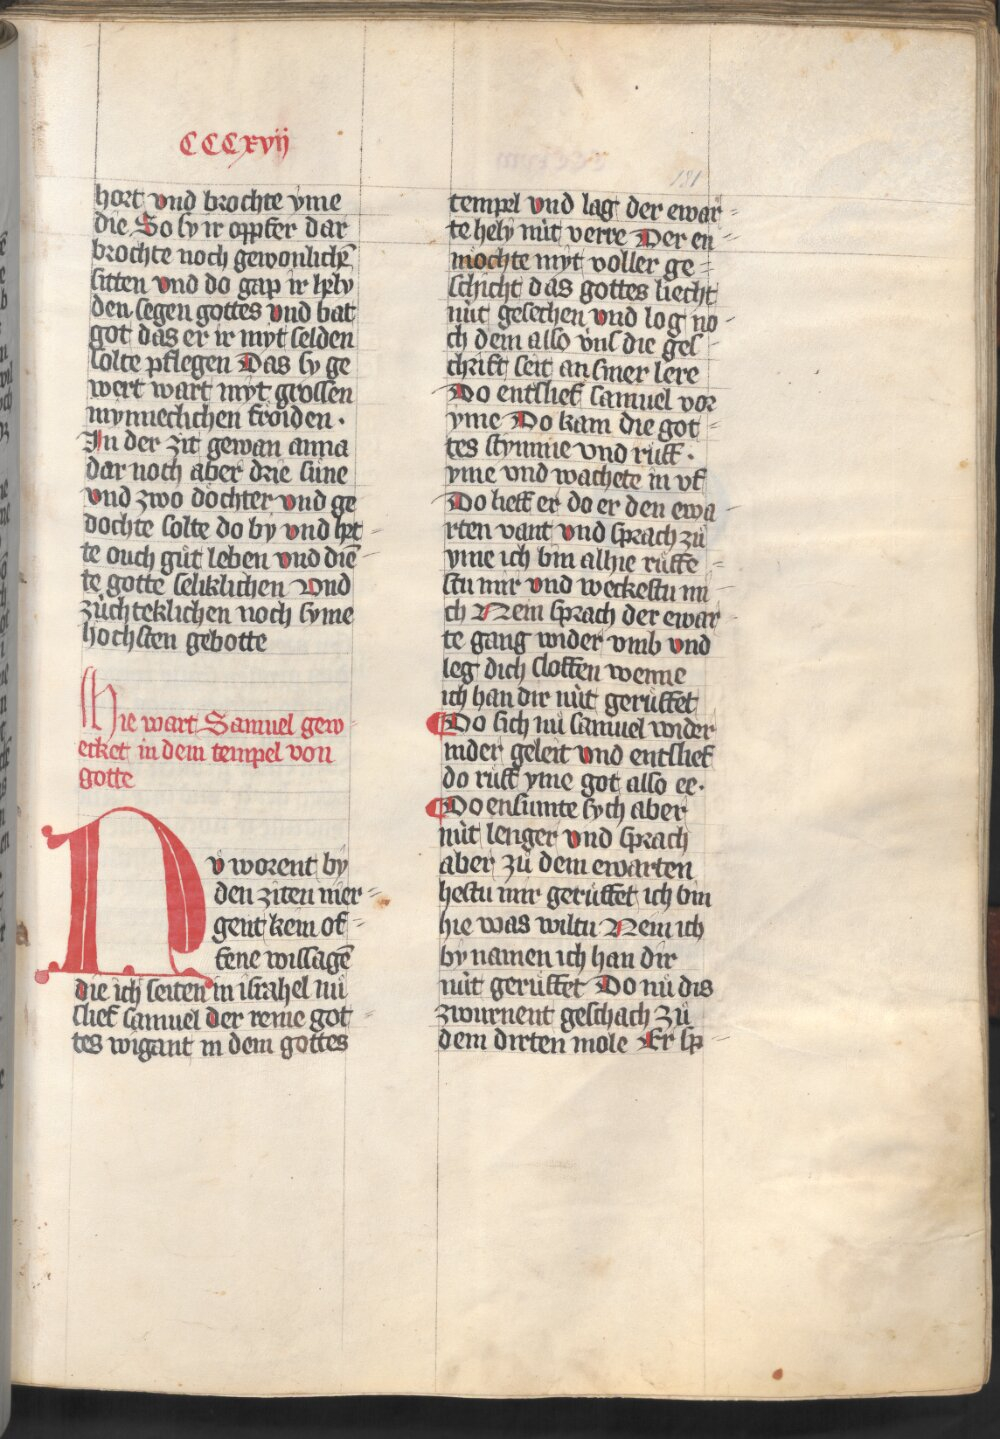 CCCxvij
181
hort vnd brochte yme
die So sy ir oppfer dar
brochte noch gewonlichē
sitten vnd do gap ir hely
den segen gottes vnd bat
got das er ir myt selden
solte pflegen Das sy ge
wert wart myt grossen
mynneclichen froiden.
In der zit gewan anna
dar noch aber drie süne
vnd zwo döchter vnd ge
dochte solte do by vnd het
te ouch gůt leben vnd diē
te gotte seliklichen Vnd
züchteklichen noch syme
hochsten gebotte
Hie wart Samuel gew
ecket in dem tempel von
gotte
Nv worent by
den ziten nier-
gent kein of-
fene wissagē
die ich seiten in israhel nů
slief samuel der reine got-
tes wigant in dem gottes
tempel vnd lag der ewar-
te hely nüt verre Der en-
mochte myt voller ge-
schicht das gottes liecht
nüt gesechen vnd log no-
ch dem also vns die ges-
chrift seit an siner lere
Do entslief samuel vor
yme Do kam die got-
tes stymme vnd rüff.
yme vnd wachete in vf
Do lieff er do er den ewa-
rten vant vnd sprach zů
yme ich bin alhie rüffe-
stu mir vnd weckestu mi-
ch Nein sprach der ewar-
te gang wider vmb vnd
leg dich sloffen wenne
ich han dir nüt gerüffet
Do sich nů samuel wider
nider geleit vnd entslief
do rüff yme got also ee.
Do ensumte sych aber
nüt lenger vnd sprach
aber zů dem ewarten
hestu mir gerüffet ich bin
hie was wiltu Nein ich
by namen ich han dir
nüt gerüffet Do nů dis
zwurnent geschach zů
dem dirten mole Er sp-